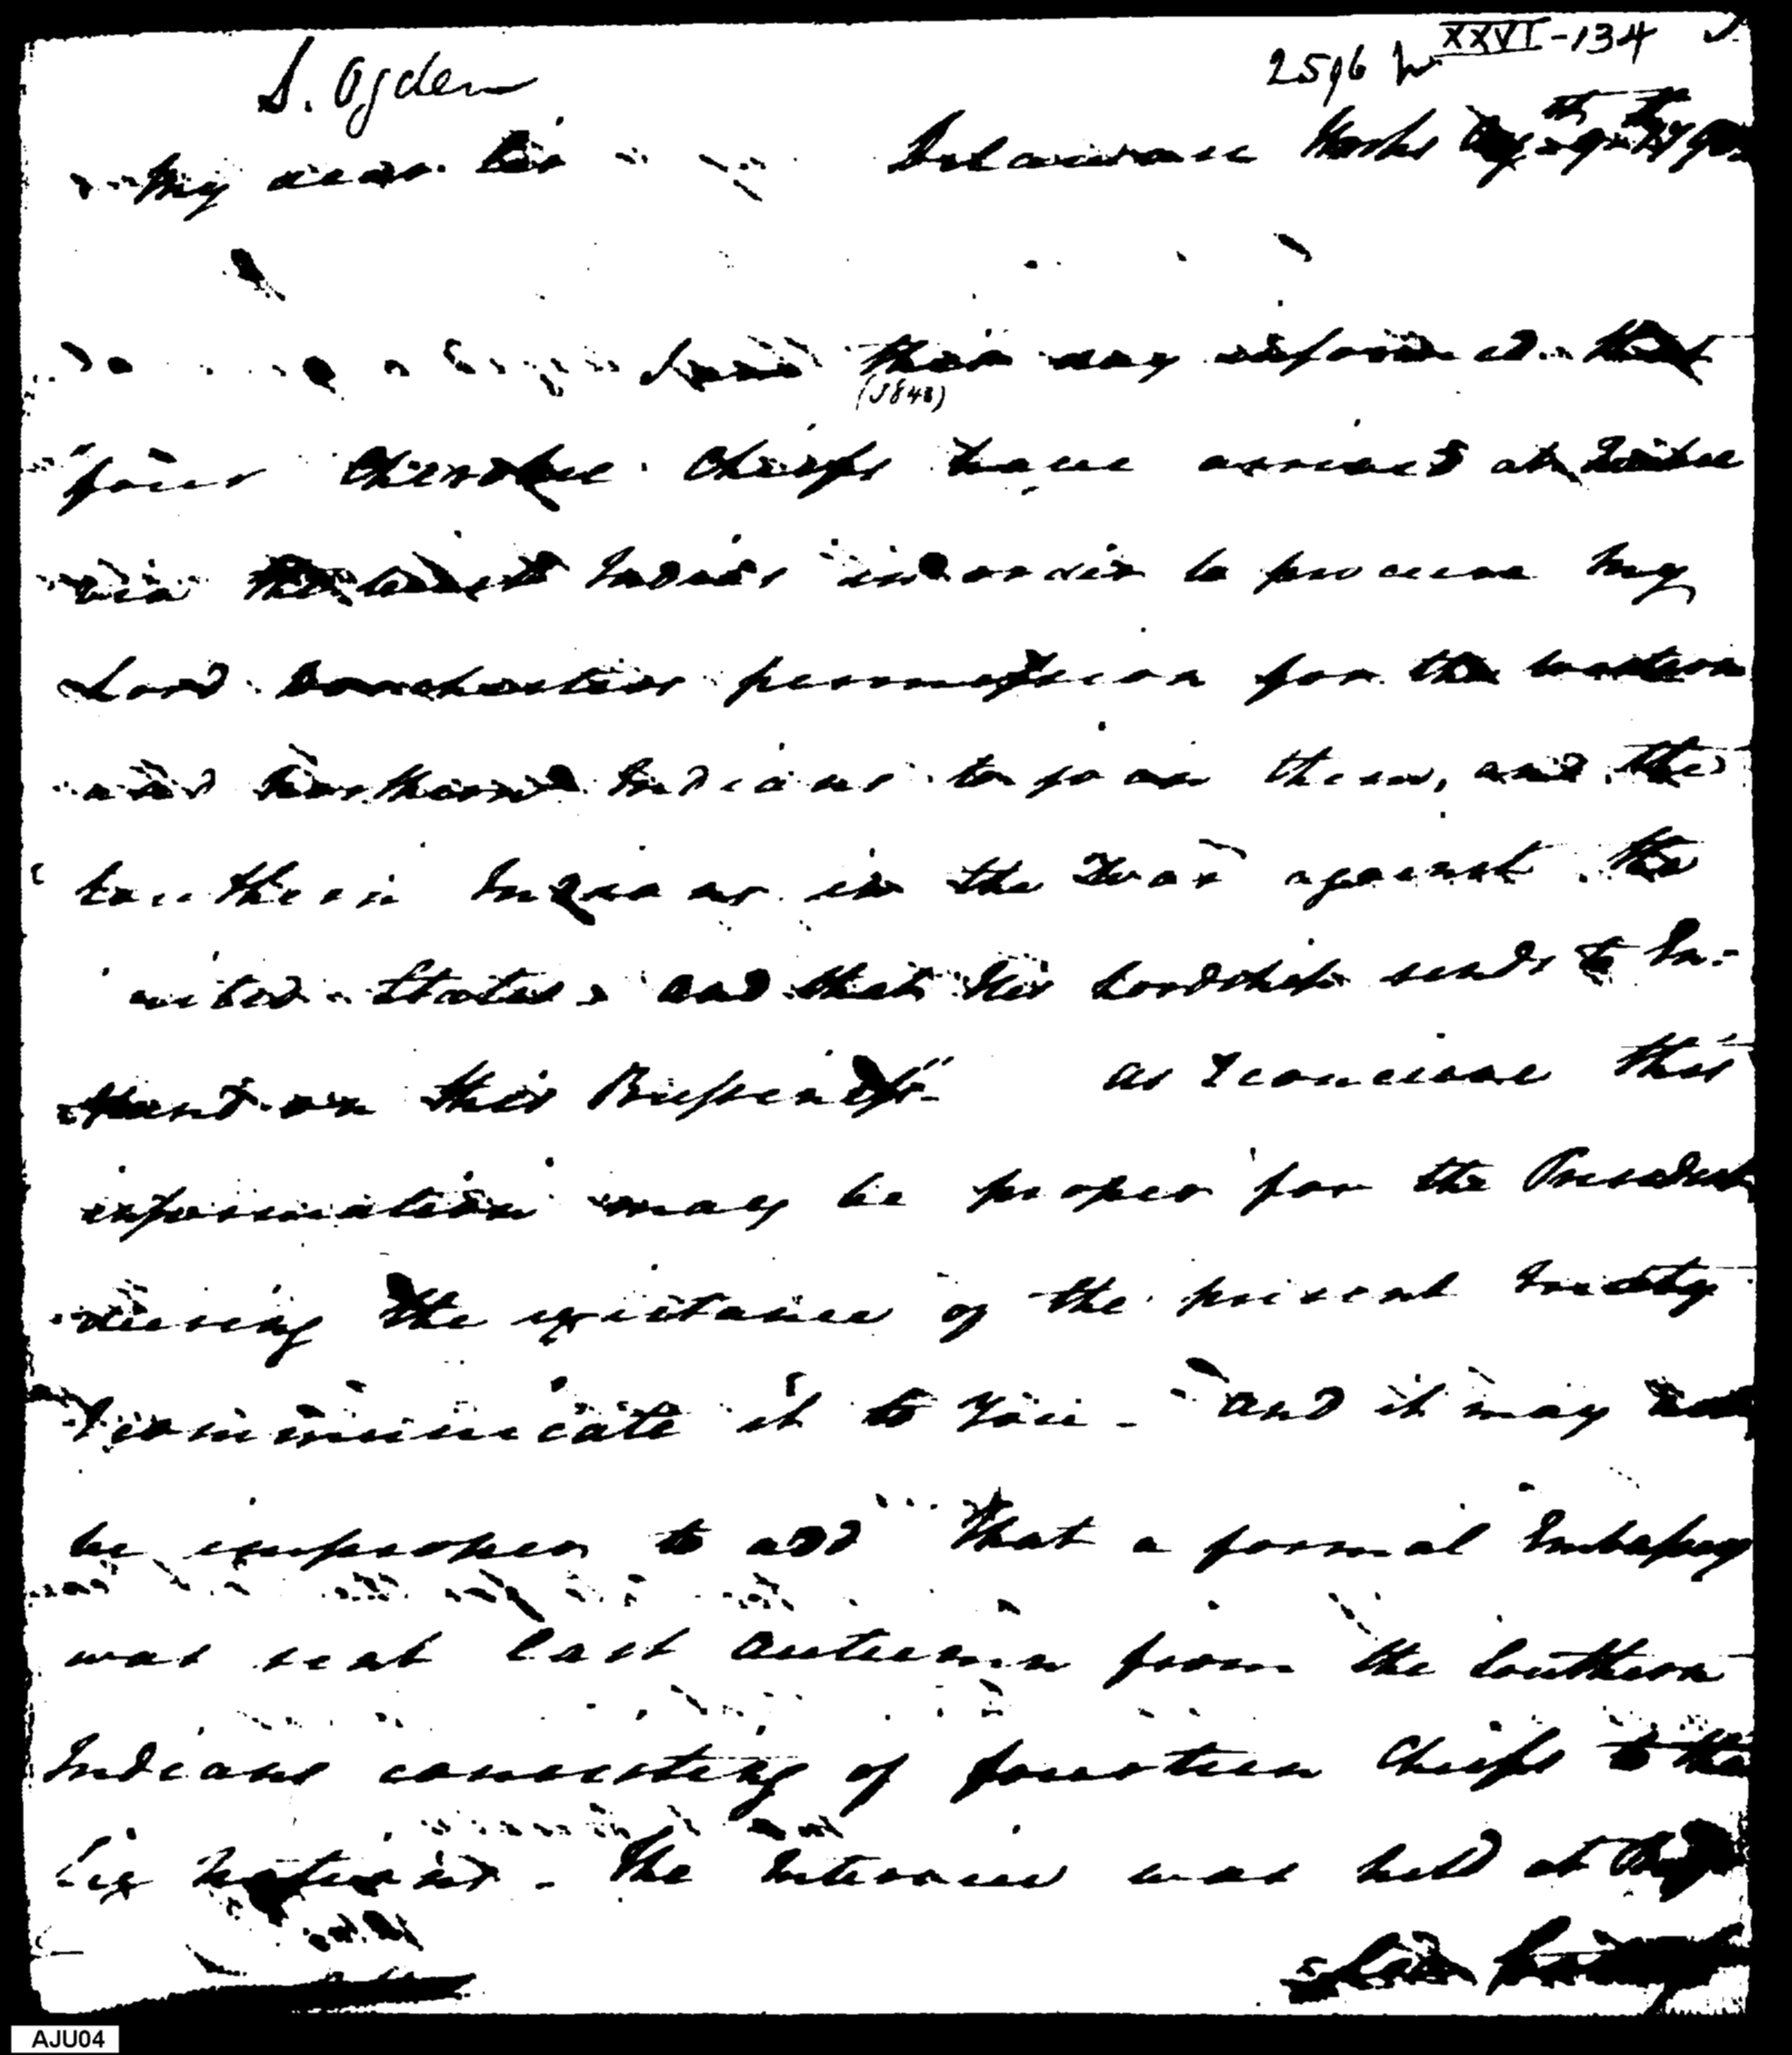 S. Ogden
2596 XXVI-134
My dear Sir Delaware Works
have this day information that
(1848)
four Cherokee Chiefs have arrived at
via the West Indies in order to procure my
Lord Dorchesters permission for the western
and Northern Indians to join them, and the
Southern Indians in the War against the
united States, and that his Lordship sends to
on this Business. as I conceive this
information may be proper for the President
during the existance of the present treaty
I communicate it to You - and it may not
be improper to add that a formal Embassy
was sent last Autumn from the Southern
Indians consisting of fourteen Chiefs to the
Six Nations. The Interview was held at
AJU04